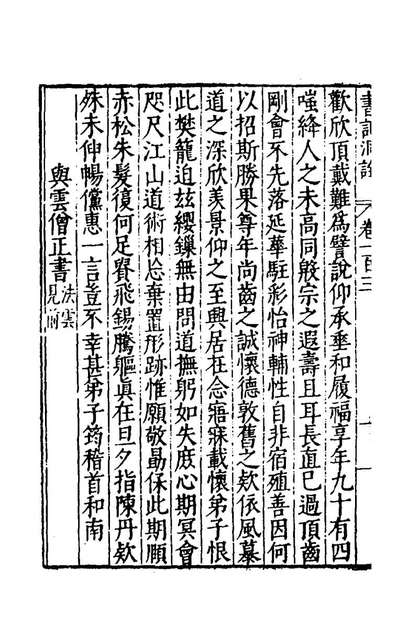 書記洞詮 卷一百三
歡欣頂戴難爲譬說仰承垂和履福享年九十有四
嗤絳人之未高同殷宗之遐壽且耳長直已過頂齒
剛會不先落延華駐彩怡神輔性自非宿殖善因何
以招斯勝果尊年尚齒之誠懷德敦舊之欵依風慕
道之深欣羨景仰之至興居在念寤寐載懷弟子恨
此樊籠迫玆纓鏁無由問道撫躬如失庶心期冥會
咫尺江山道術相忘棄置形跡惟願敬勗保此期頤
赤松朱髮復何足貴飛錫騰軀眞在旦夕指陳丹欵
殊未伸暢儻惠一言豈不幸甚弟子筠稽首和南
與雲僧正書法雲見前